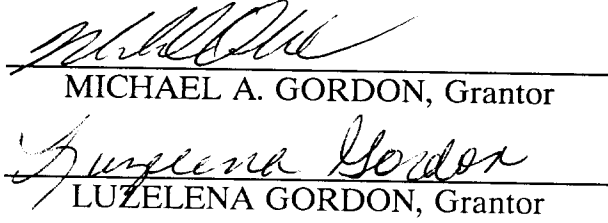 MICHAEL A. GORDON, Grantor
Luzelena Gordon
LUZELENA GORDON, Grantor